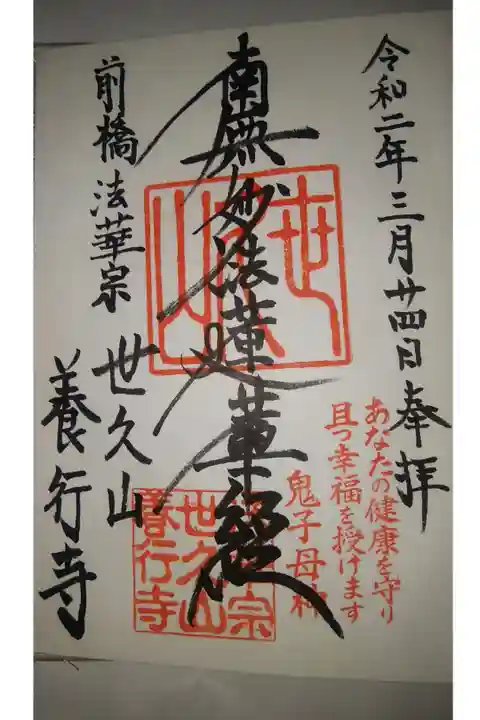 令和二年三月廿四日奉拝
あなたの健康を守り
且つ幸福を授けます
鬼子母神
南無妙法蓮華経
前橋法華宗
世久山
養行寺
世久山
養行寺